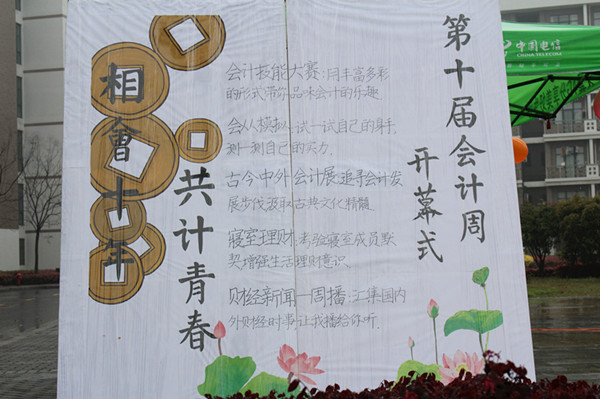 第十届会计周
开幕式
相會十年
共计青春
会计技能大赛:用丰富多彩
的形式带你品味会计的乐趣
会从模拟:试一试自己的身手,
测一测自己的实力.
古今中外会计展追寻会计发
展步伐汲取古典文化精髓
寝室理财:考验寝室成员默
契增强生活理财意识.
财经新闻一周播:汇集国内
外财经时事让我播给你听.
中国电信
CHINA TELECOM